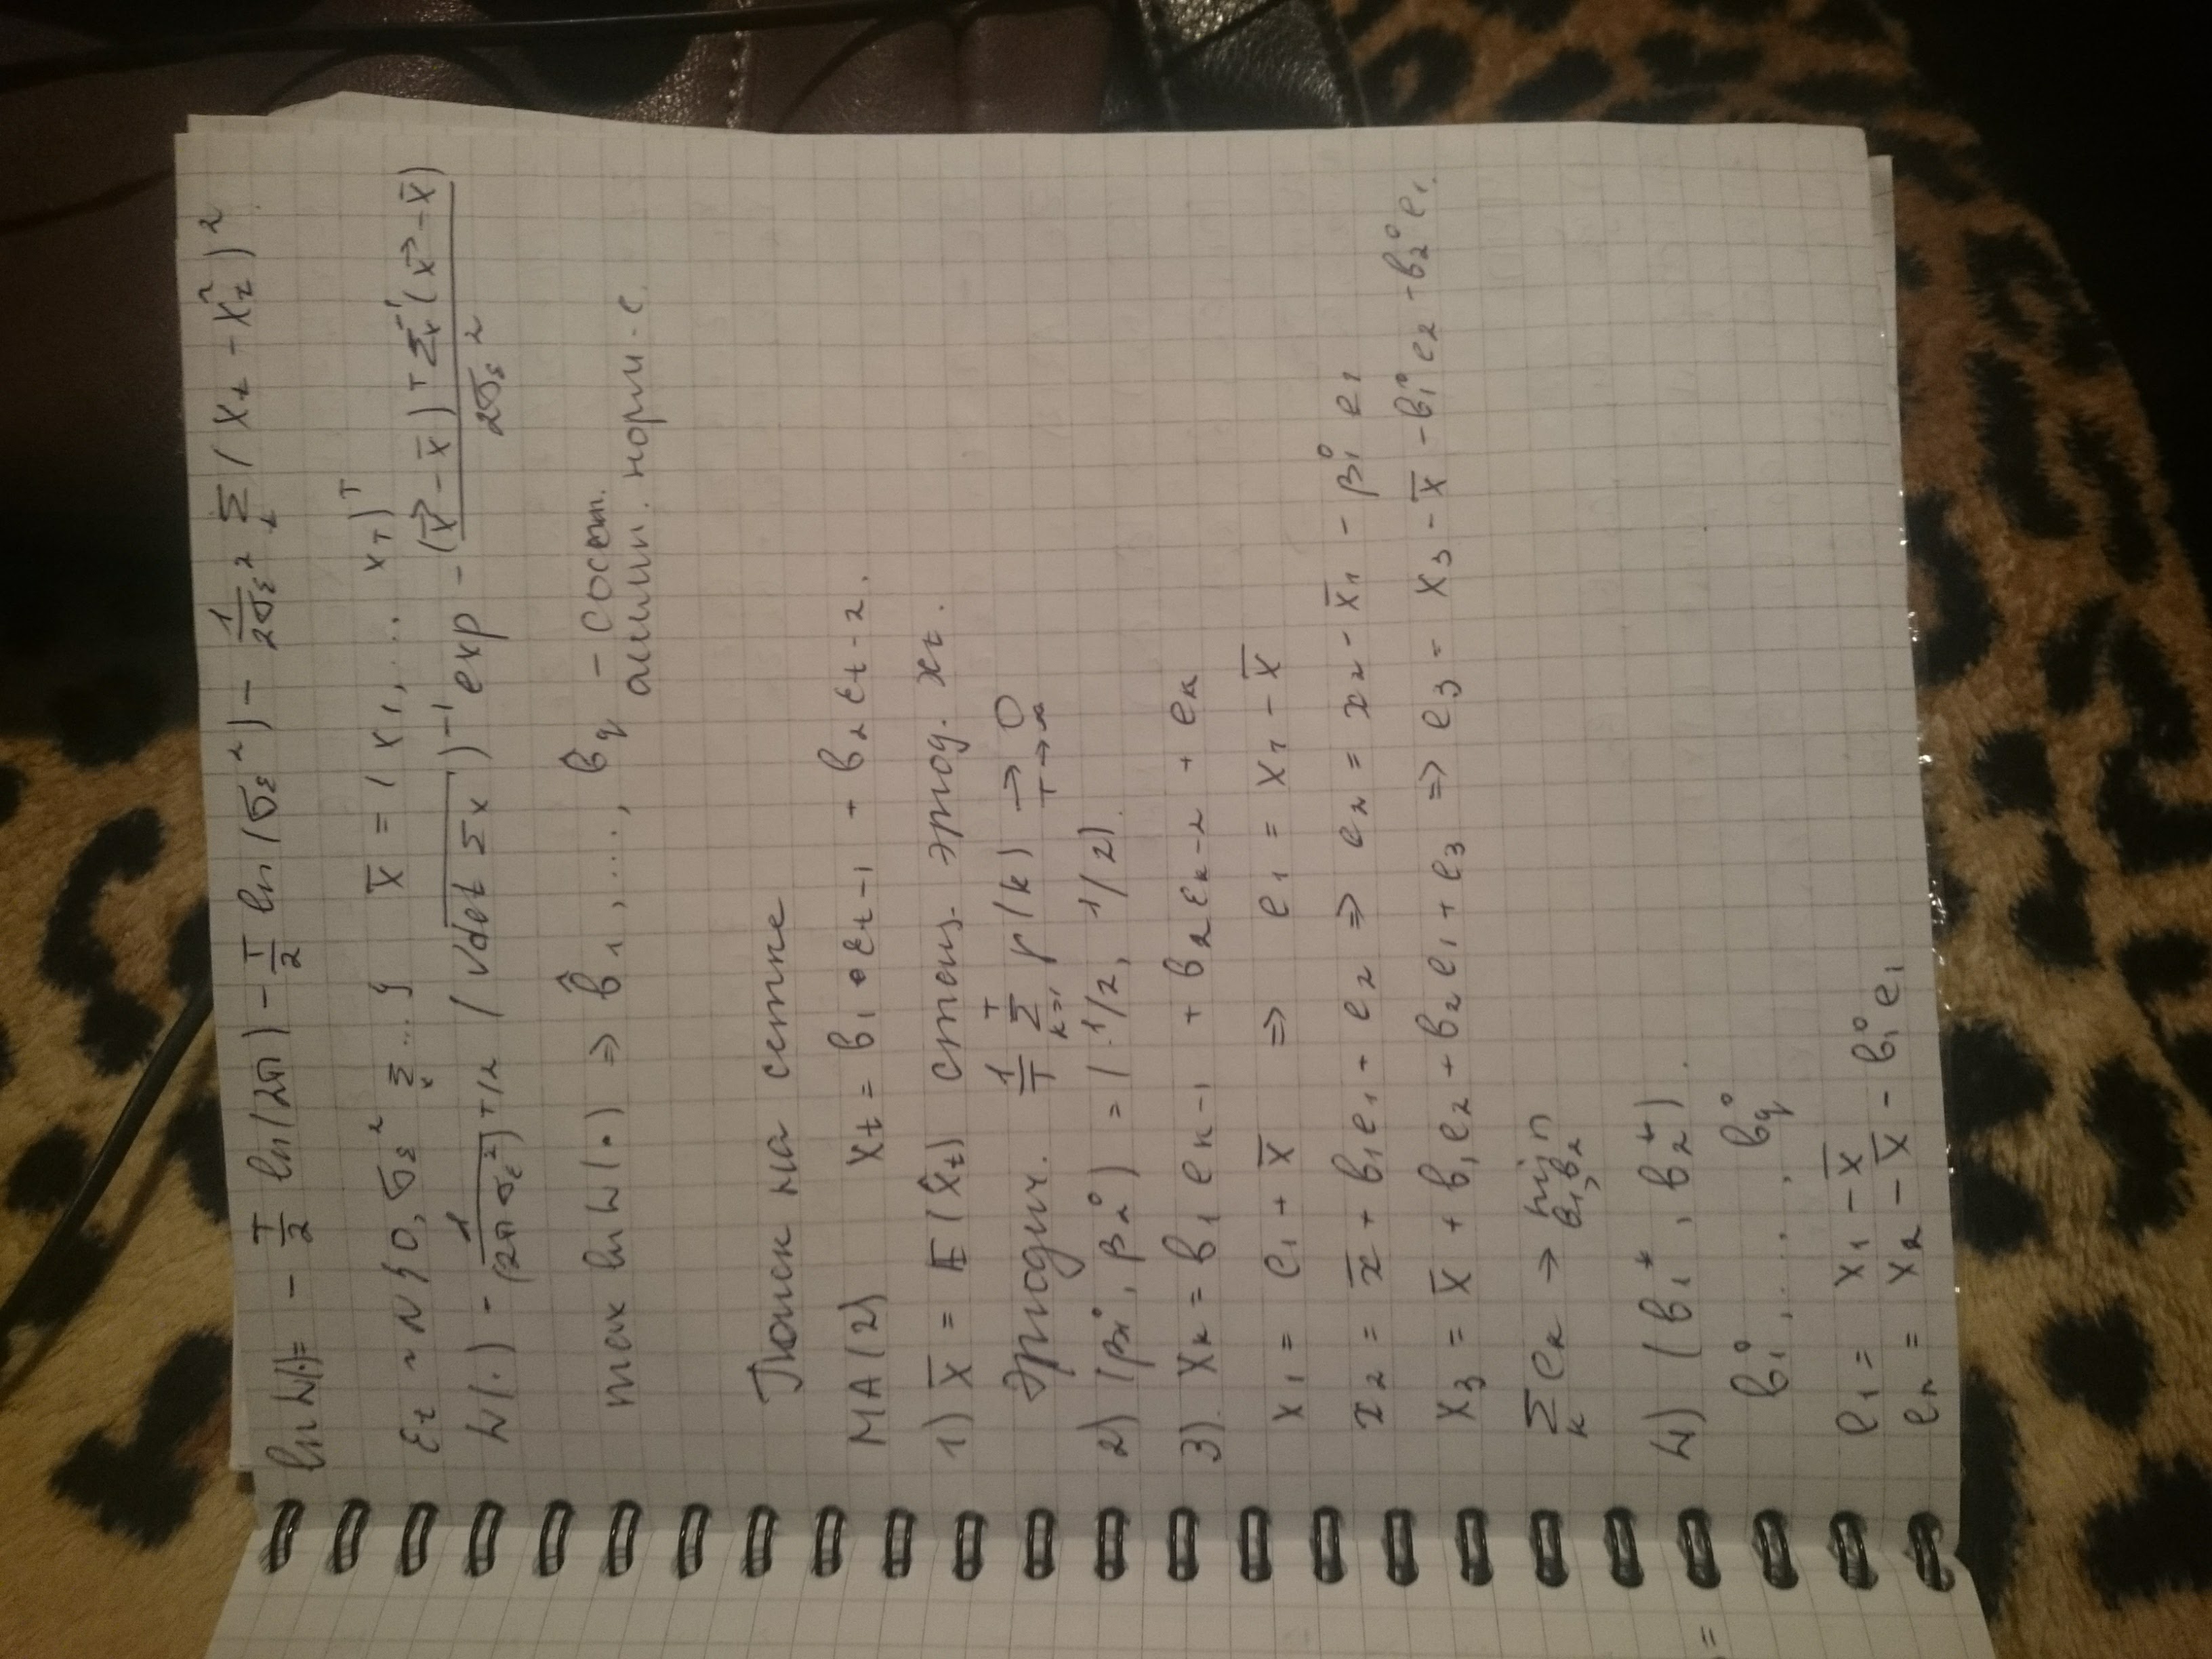 ln L(·)= - T/2 ln(2π) - T/2 ln(σε²) - 1/(2σε²) Σt (xt - x̂t)²
εt ~ N{0, σε² Σx ...} x̄ = (x1, ... xT)ᵀ
L(·) - 1/(2π σε²)^T/2 (√det Σx)⁻¹ exp - (x⃗ - x̄)ᵀ Σx⁻¹ (x⃗ - x̄) / 2σε²
max ln L(·) ⇒ b̂1, ..., b̂q - сост.
асимп. норм. с.
Поиск на сетке
MA(2) xt = b1 · εt-1 + b2 εt-2.
1) x̄ = E(x̂t) стац. эргод. xt.
Эргодич. 1/T Σ(k=1..T) ρ(k) → 0 T→∞
2) (β1⁰, β2⁰) = (1/2, 1/2).
3). xk = b1 ek-1 + b2 εk-2 + ek
x1 = e1 + x̄ ⇒ e1 = x1 - x̄
x2 = x̄ + b1e1 + e2 ⇒ e2 = x2 - x̄1 - β1⁰ e1
x3 = x̄ + b1e2 + b2e1 + e3 ⇒ e3 = x3 - x̄ - b1⁰e2 - b2⁰e1.
Σk ek → min b1, b2
4) (b1*, b2*).
b1⁰, ..., bq⁰
e1 = x1 - x̄
e2 = x2 - x̄ - b1⁰ e1
=